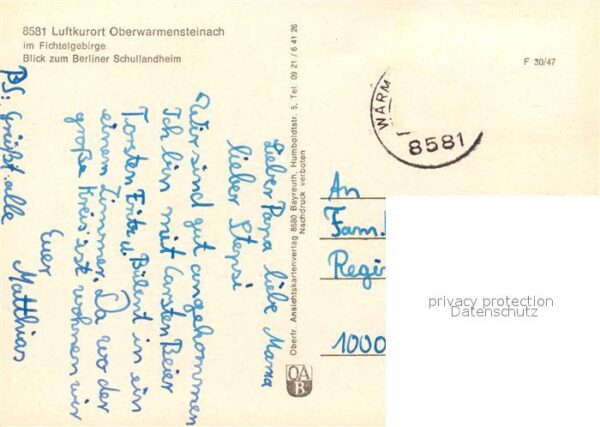 8581 Luftkurort Oberwarmensteinach
im Fichtelgebirge
Blick zum Berliner Schullandheim
F 30/47
WARM
8581
Oberfr. Ansichtskartenverlag 8580 Bayreuth, Humboldtstr. 5, Tel. 09 21 / 6 41 26
Nachdruck verboten
OAB
Lieber Papa liebe Mama
lieber Stepsi
Wir sind gut angekommen
Ich bin mit Carsten Beier
Torsten u. Bülent in ein
einem Zimmer. Da wo der
große Kreis ist wohnen wir
Euer
Matthias
PS: Grüßt alle
An
Fam.
Regi
1000
privacy protection
Datenschutz